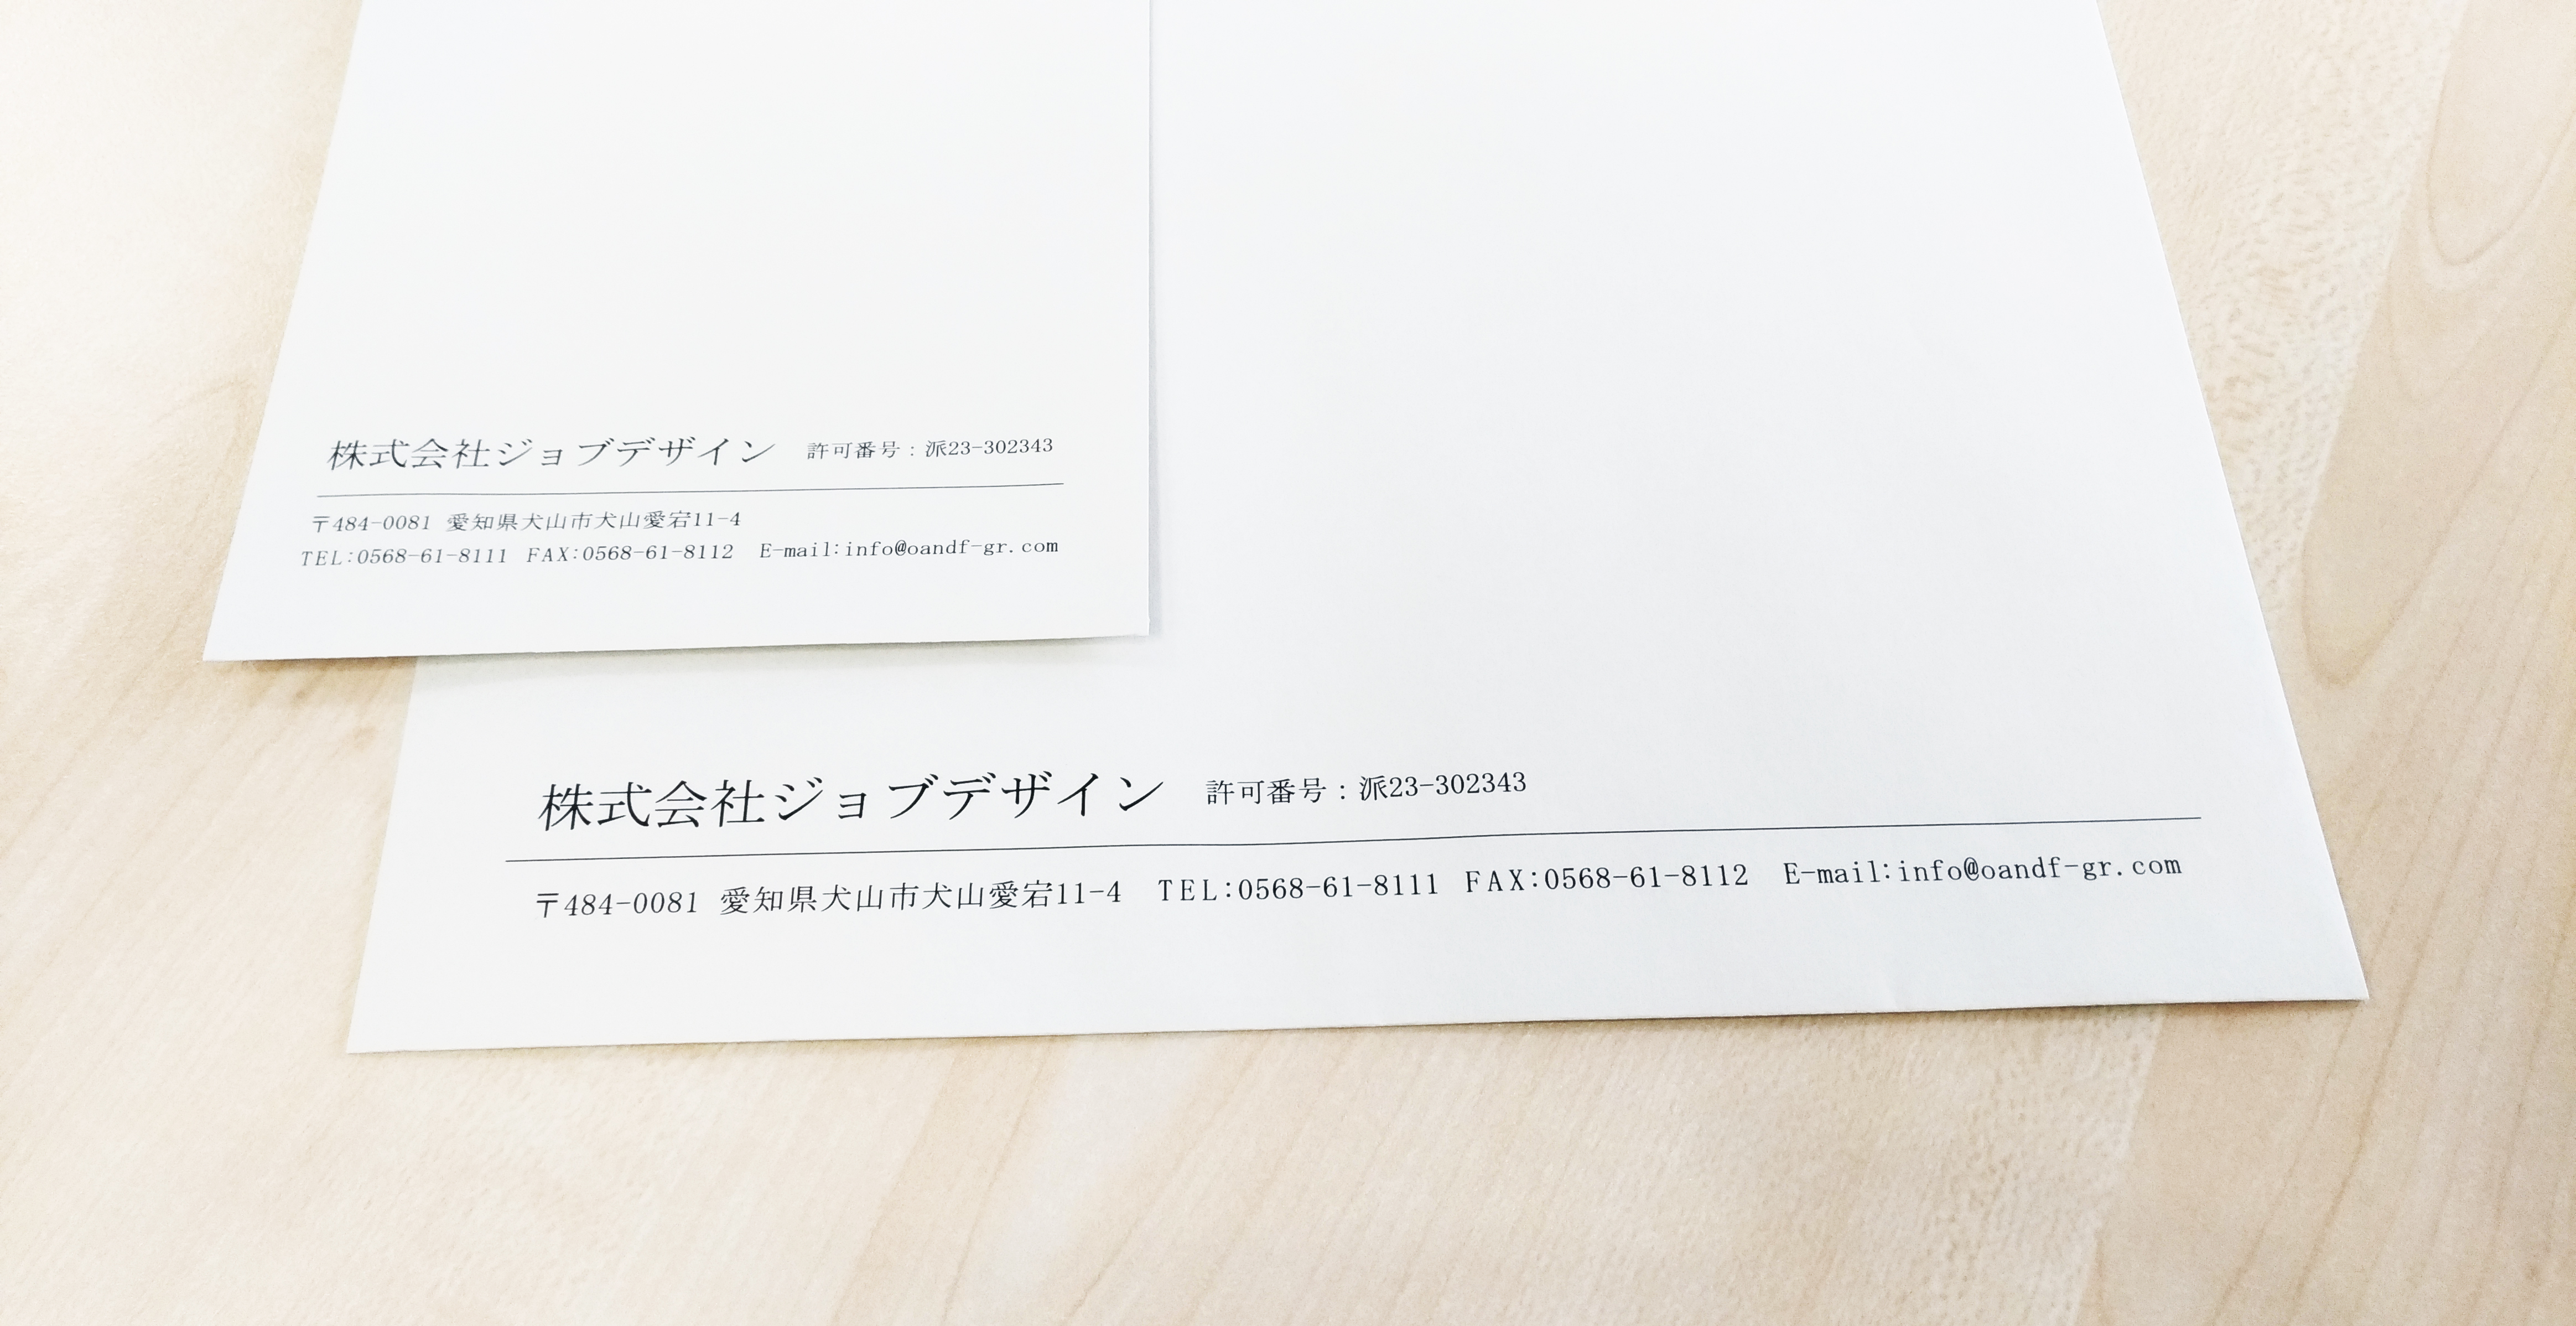 株式会社ジョブデザイン 許可番号：派23-302343
〒484-0081 愛知県犬山市犬山愛宕11-4
TEL:0568-61-8111 FAX:0568-61-8112 E-mail:info@oandf-gr.com
株式会社ジョブデザイン 許可番号：派23-302343
〒484-0081 愛知県犬山市犬山愛宕11-4 TEL:0568-61-8111 FAX:0568-61-8112 E-mail:info@oandf-gr.com